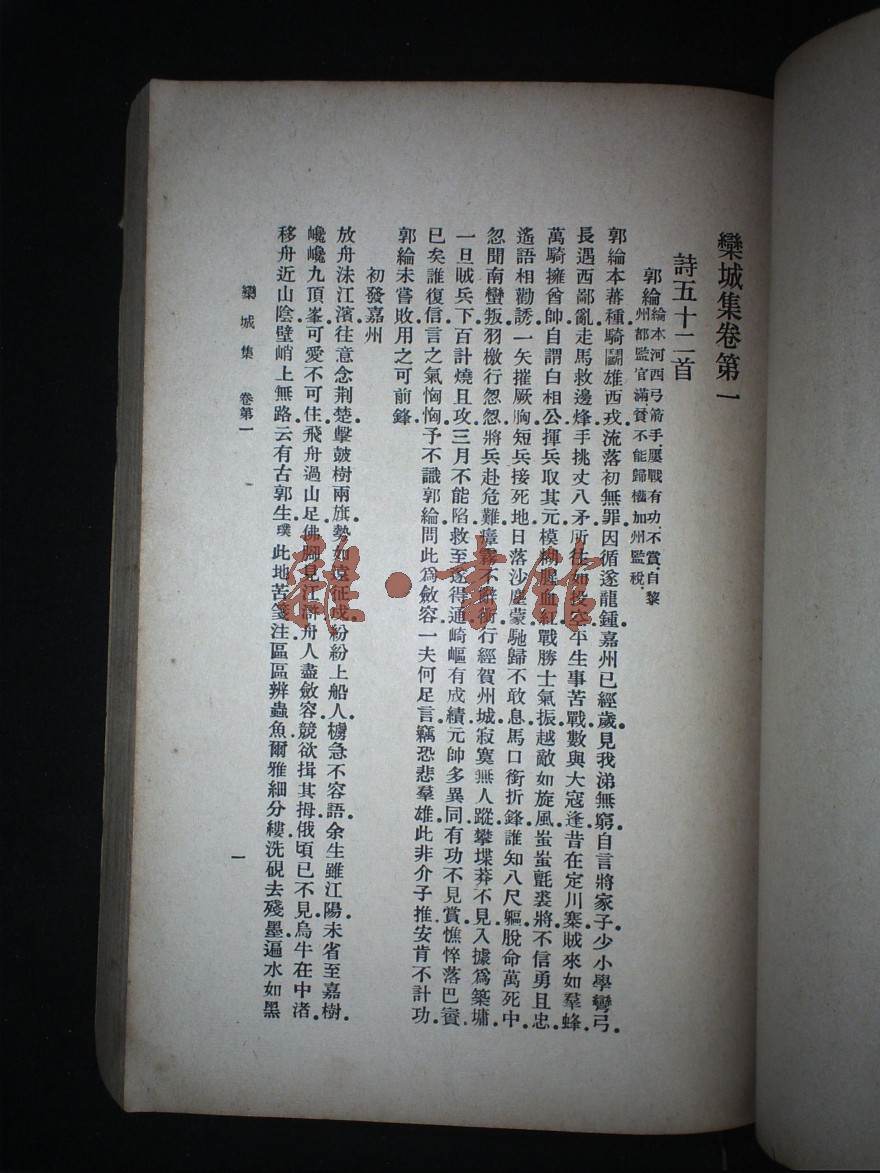 欒城集卷第一
詩五十二首
郭綸綸本河西弓箭手.屢戰有功.不賞.自黎
州都監官滿貧不能歸權加州監稅.
郭綸本蕃種騎鬭雄西戎.流落初無罪.因循遂龍鍾.嘉州已經歲見我涕無窮.自言將家子少小學彎弓.
長遇西鄙亂走馬救邊烽.手挑丈八矛所往如投空.平生事苦戰數與大寇逢.昔在定川寨賊來如羣蜂.
萬騎擁酋帥自謂白相公.揮兵取其元模糊腥血紅.戰勝士氣振越敵如旋風.蚩蚩氈裘將不信勇且忠.
遙語相勸誘一矢摧厥胸.短兵接死地日落沙塵蒙.馳歸不敢息馬口銜折鋒.誰知八尺軀脫命萬死中.
忽聞南蠻叛羽檄行忽忽.將兵赴危難瘴霧不辭衝.行經賀州城寂寞無人蹤.攀堞莽不見入據爲築墉.
一旦賊兵下百計燒且攻.三月不能陷救至遂得通.崎嶇有成績元帥多異同.有功不見賞憔悴落巴賨.
已矣誰復信言之氣恟恟.予不識郭綸問此爲斂容.一夫何足言竊恐悲羣雄.此非介子推安肯不計功.
郭綸未嘗敗用之可前鋒.
初發嘉州
放舟沫江濱往意念荆楚.擊鼓樹兩旗勢如遠征戍.紛紛上船人櫓急不容語.余生雖江陽未省至嘉樹.
巉巉九頂峯可愛不可住.飛舟過山足佛腳見江滸.舟人盡斂容競欲揖其拇.俄頃已不見烏牛在中渚.
移舟近山陰壁峭上無路.云有古郭生璞此地苦箋注.區區辨蟲魚爾雅細分縷.洗硯去殘墨遍水如黑
欒城集 卷第一
一
雜·書館